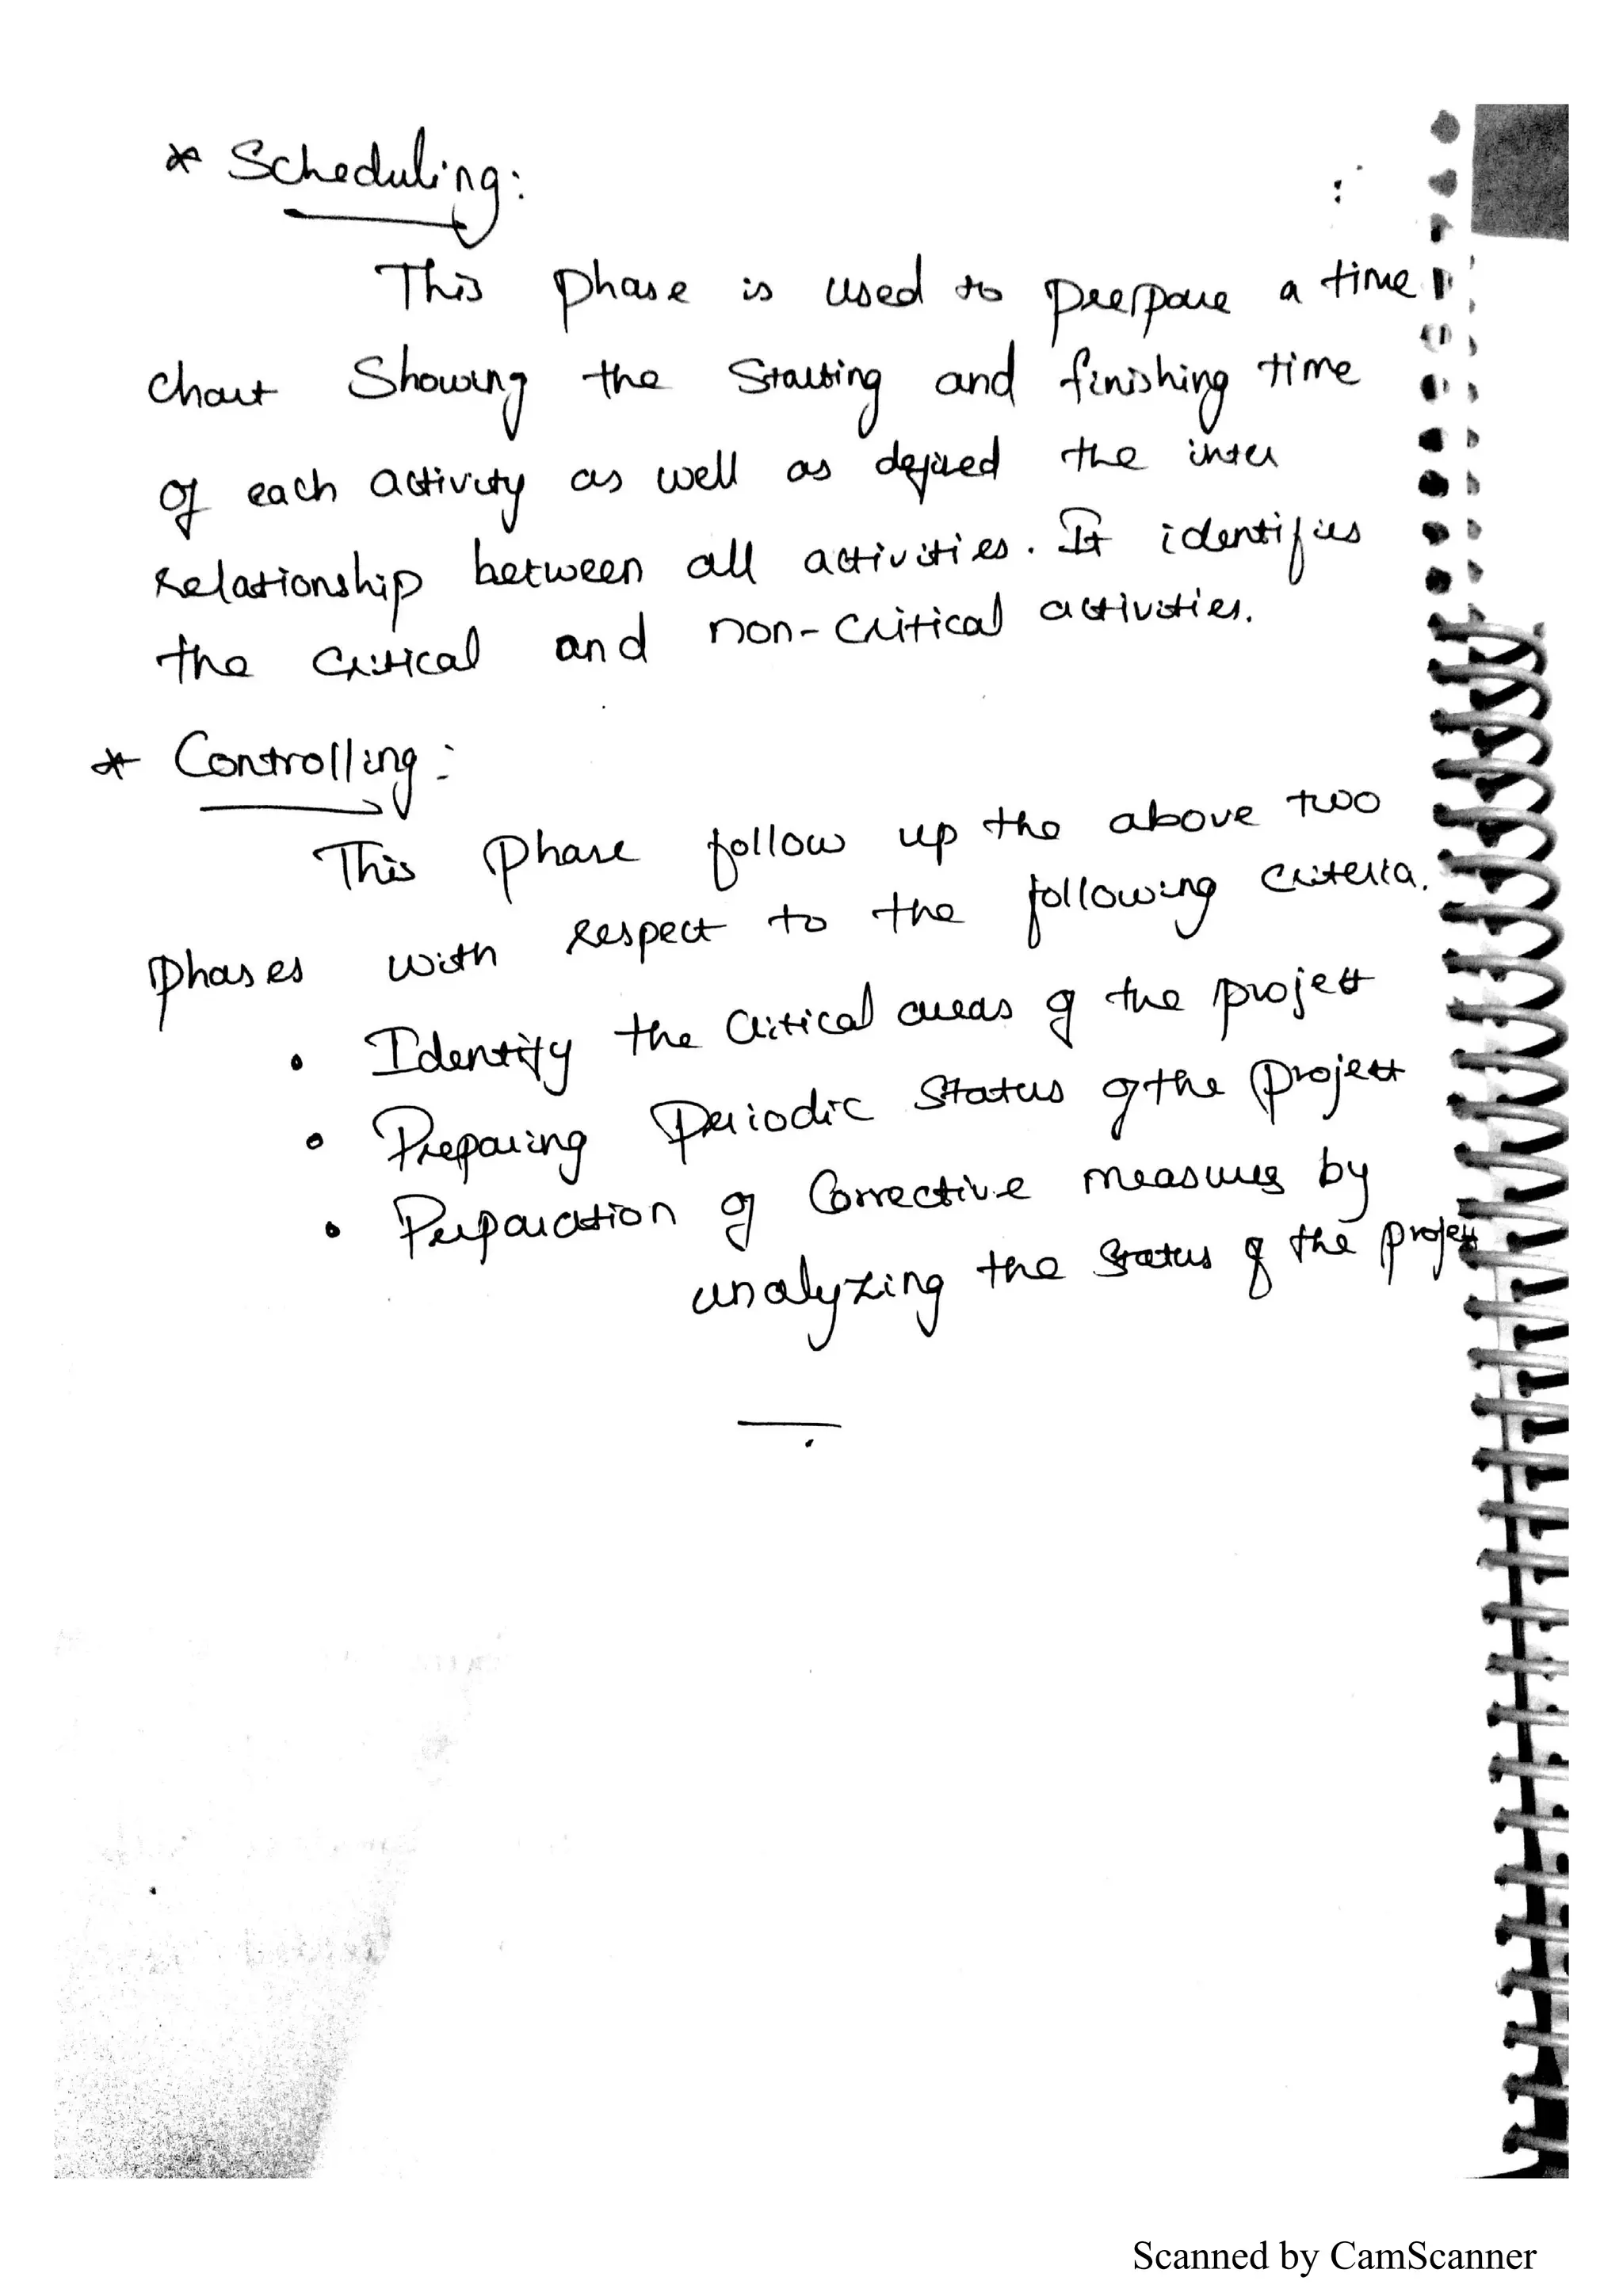 * Scheduling:
This phase is used to prerpare a time
chart Showing the Starting and finishing time
of each activity as well as defined the inter
relationship between all activities. It identifies
the critical and non-critical activities.
* Controlling:
This phase follow up the above two
phases with respect to the following criteria.
• Identify the critical areas of the project
• Preparing Periodic Status of the project
• Preparation of Corrective measures by
analyzing the status of the project
Scanned by CamScanner